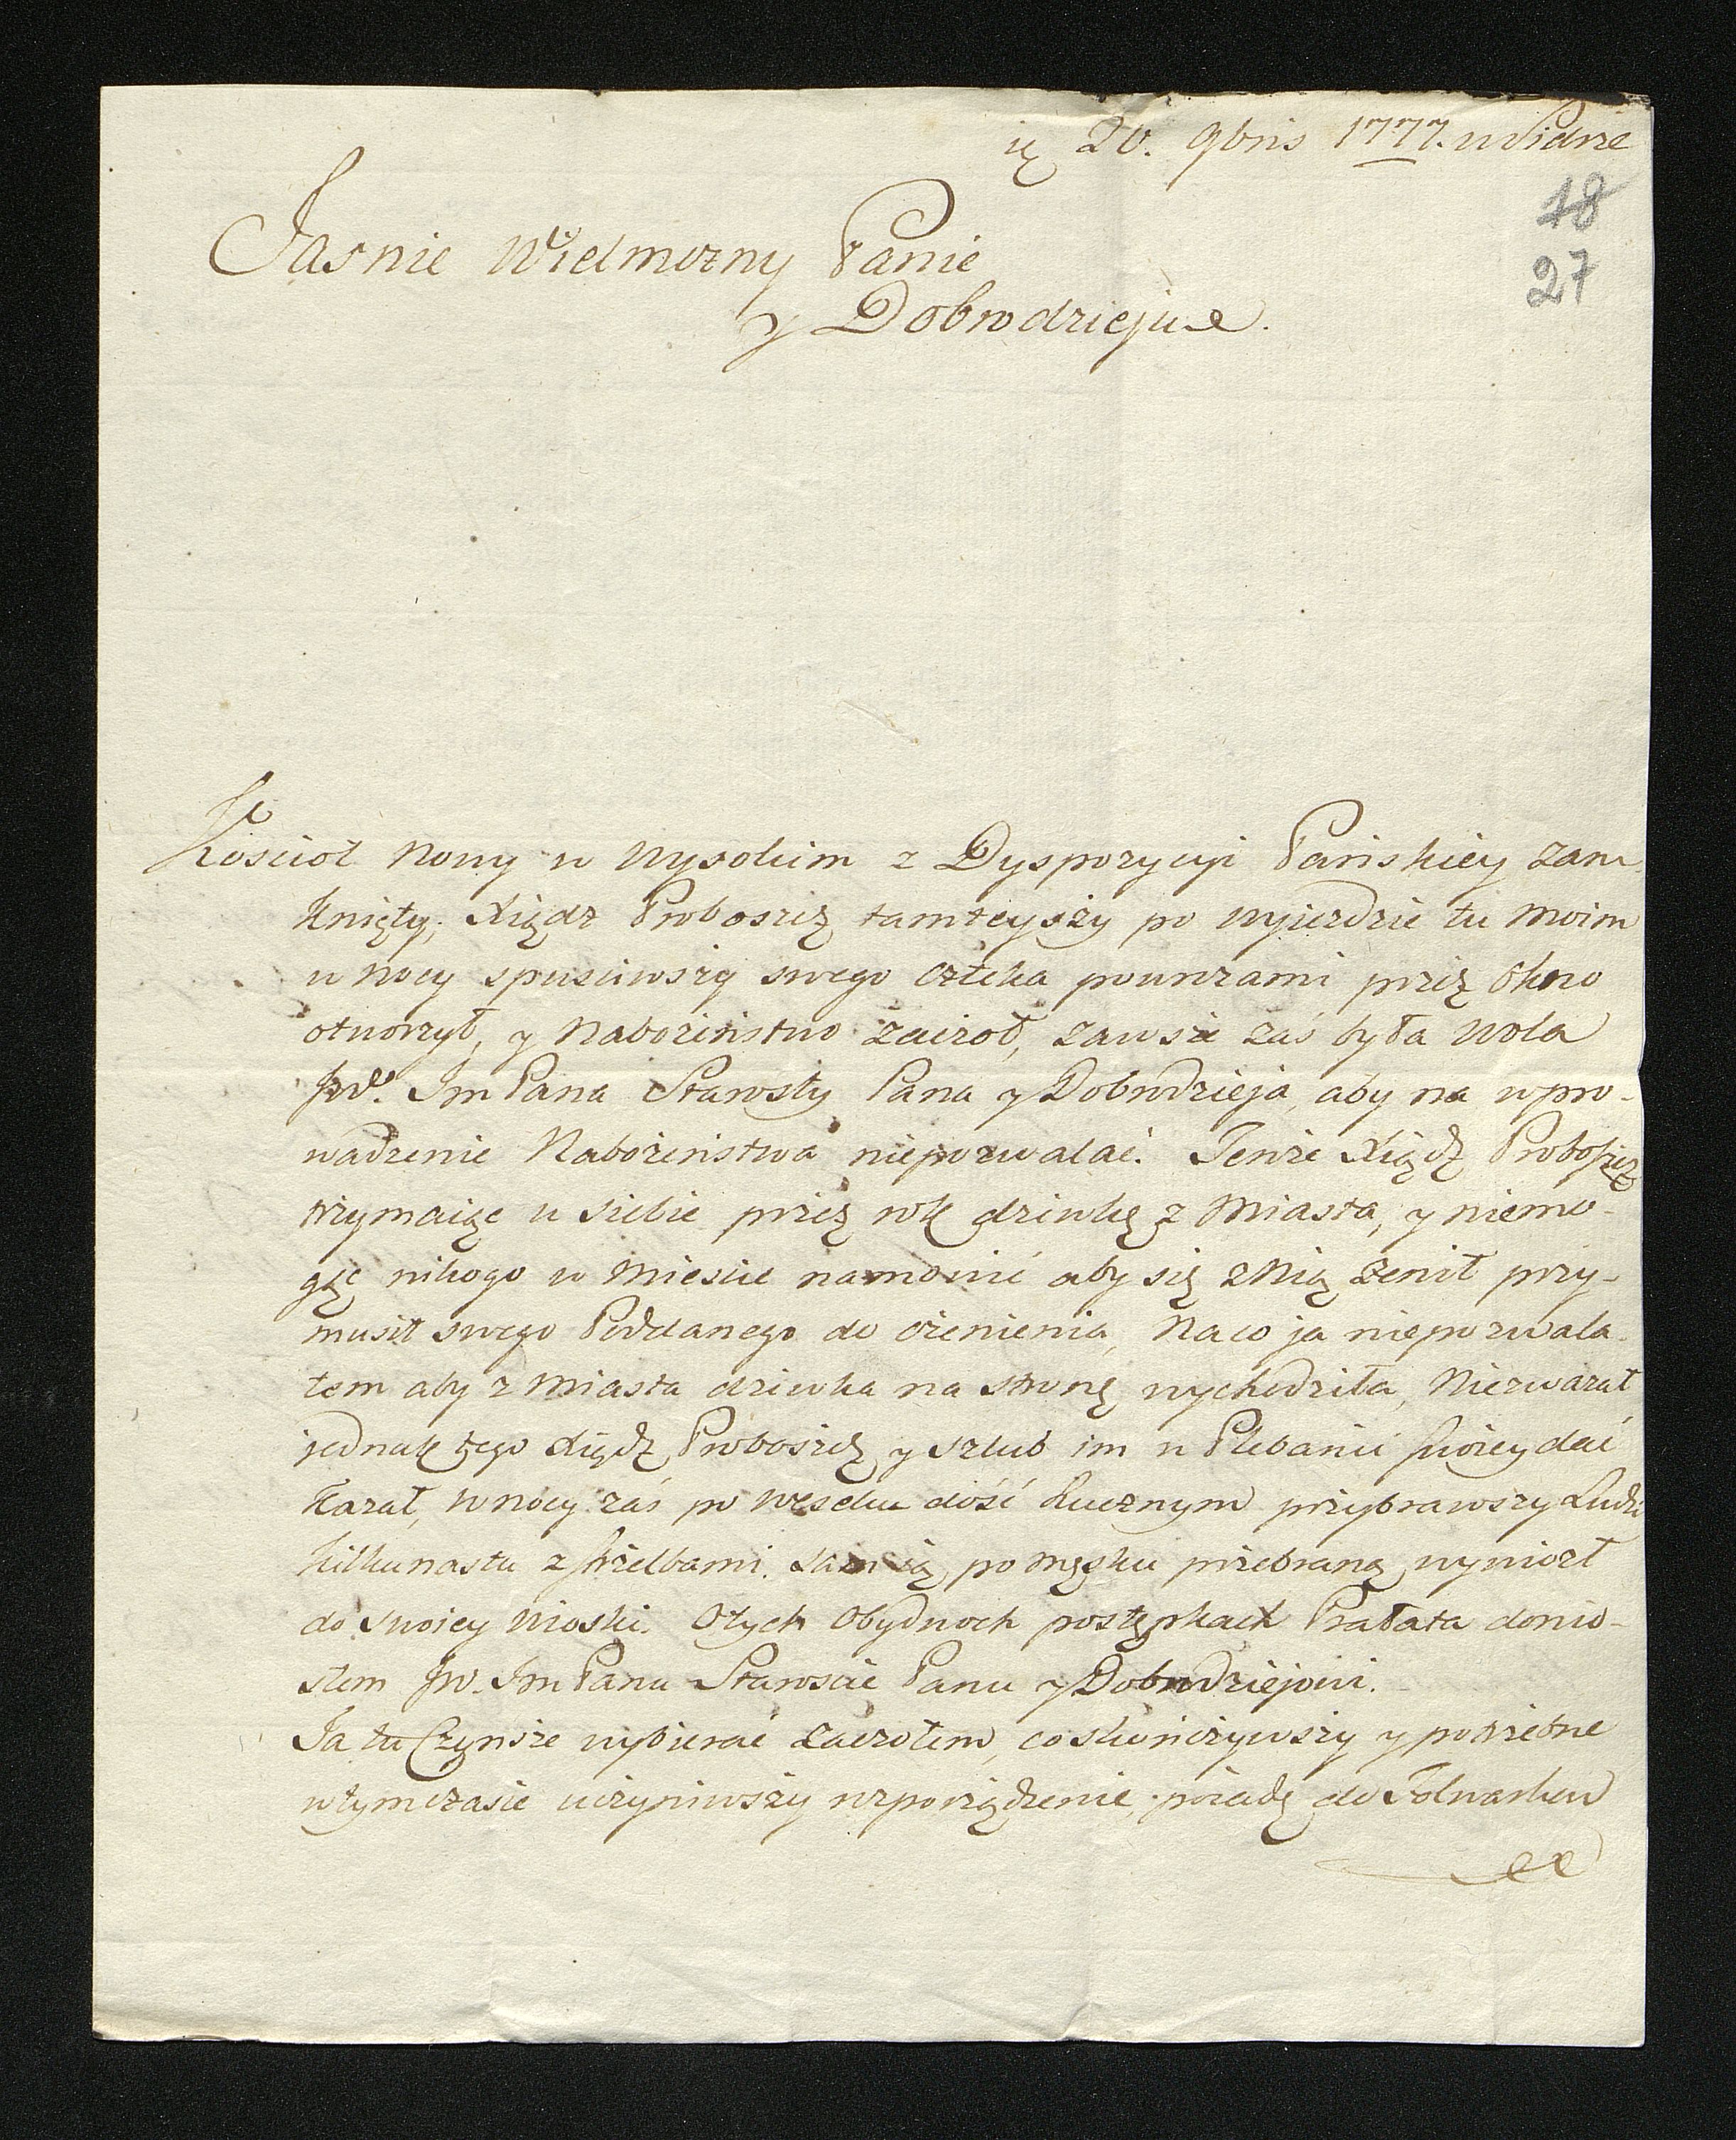 20. 9bris 1777. w Widzie
18
27
Jasnie Wielmozny Panie
y Dobrodzieju
Kościoł Nowy w Wysokim z Dyspozycyi Pańskiey zam
knięty, Xiądz Proboszcz tamteyszy po wyjezdzie tu moim
w nocy spusciwszy swego człeka powrozami przez Okno
otworzył, y Nabożeństwo zaczoł, zawsze zaś była Wola
JW. Im Pana Starosty Pana y Dobrodzieja, aby na wpro-
wadzenie Nabożeństwa niepozwalać. Tenże Xiądz Proboszcz
trzymaiąc u siebie przez rok dziewkę z Miasta, y niemo-
gąc nikogo w Miescie namowić aby się z Nią żenił przy-
musił swego Poddanego do ożenienia, Naco ja niepozwala-
łem aby z Miasta dziewka na stronę wychodziła, Niezważał
jednak tego Xiądz Proboszcz y szlub im w Plebanii swoiey dać
Kazał, w nocy zaś po weselu dość hucznym przybrawszy Ludzi
kilkunastu z strzelbami. sam ią po męsku przebraną wywiozł
do swoiey Wioski. Otych Obydwoch postępkach Prałata donio-
słem JW. Im Panu Staroscie Panu y Dobrodziejowi.
Ja tu Czynsze wybierać zaczołem, co skończywszy y potrzebne
wtymczasie uczyniwszy rozporządzenie, pojadę do Folwarkow